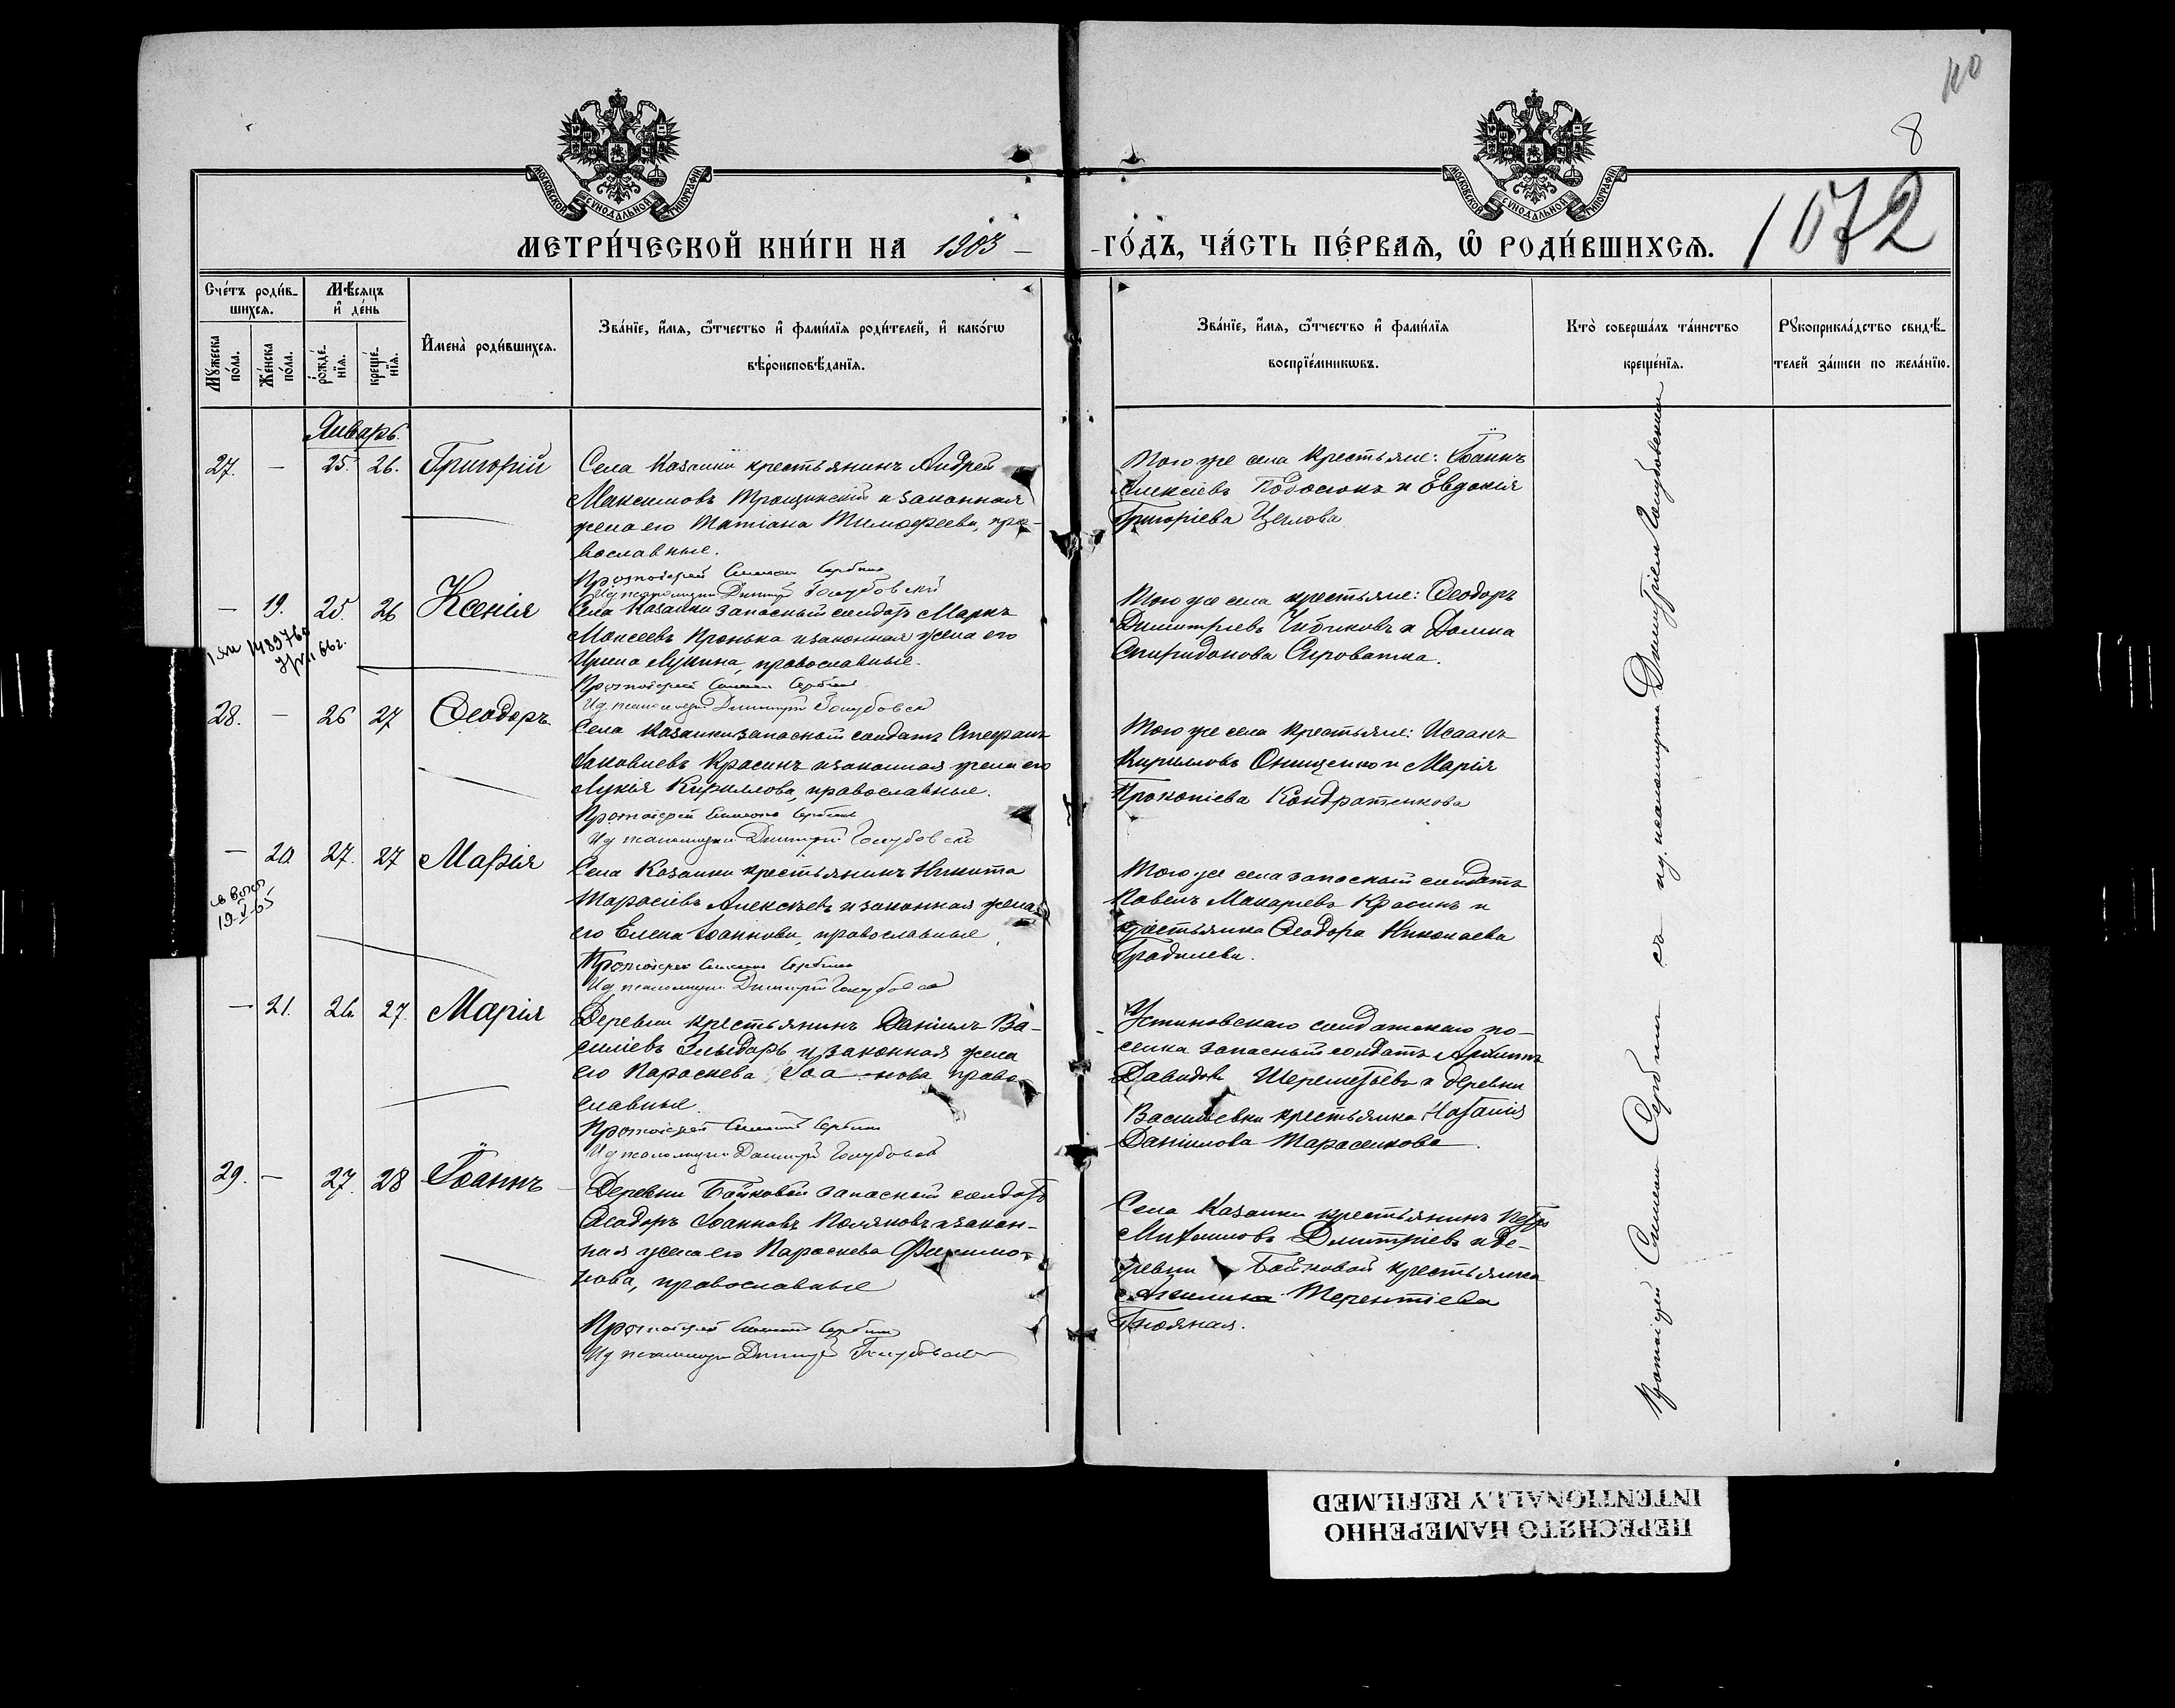 110
8
1072
МОСКОВСКОЙ СѴНОДАЛЬНОЙ ТИПОГРАФІИ
МОСКОВСКОЙ СѴНОДАЛЬНОЙ ТИПОГРАФІИ
МЕТРИ́ЧЕСКОЙ КНИ́ГИ НА 1903 ГО́ДЪ, ЧА́СТЬ ПЕ́РВАѦ, Ѡ РОДИ́ВШИХСѦ.
Сче́тъ роди́в-
шихсѧ.
Мꙋ́жеска по́ла.
Же́нска по́ла.
Мѣ́сѧцъ и де́нь
рожде́-нїѧ.
креще́-нїѧ.
И҆мена̀ роди́вшихсѧ.
Зва́нїе, и҆́мѧ, ѻ҆́тчество и҆ фами́лїѧ роди́телей, и҆ како́гѡ
вѣроисповѣ́данїѧ.
Зва́нїе, и҆́мѧ, ѻ҆́тчество и҆ фами́лїѧ
воспрїе́мникѡвъ.
Кто̀ соверша́лъ та́инство
креще́нїѧ.
Рꙋкоприкла́дство свидѣ́-
телей за́писи по жела́нїю.
Январь.
27. — 25. 26. Григорій
Села Казанки крестьянинъ Андрей
Максимовъ Трощинскій и законная
жена его Татіана Тимофеева, пра-
вославные.
Протоіерей Симеон Сербинъ
Ид псаломщика Димитрій Голубовскій
Того же села крестьяне: Іоаннъ
Алексіевъ и Евдокія
Григоріева Цеглова
— 19. 25. 26 Ксенія
Села Казанки запасный солдатъ Маркъ
Моисеевъ Пронька и законная жена его
Ирина Лукина, православные.
Протоіерей Симеон Сербинъ
Ид. псаломщика Димитрій Голубовскій
Того же села крестьяне: Ѳеодоръ
Димитріевъ Чибиковъ и Домна
Спиридонова Сироватка.
28. — 26 27 Ѳеодоръ
Села Казанки запасный солдатъ Стефанъ
Яковлевъ Красинъ и законная жена его
Лукія Кириллова, православные.
Протоіерей Симеонъ Сербинъ
Ид псаломщика Димитрій Голубовскій
Того же села крестьяне: Исаакъ
Кирилловъ Онищенко и Марія
Прокопіева Кондратенкова
— 20 27. 27 Марія
19 V 65
Села Казанки крестьянинъ Никита
Тарасіевъ Алексѣевъ и законная жена
его Елена Іоаннова, православные
Протоіерей Симеонъ Сербинъ
Ид псаломщика Димитрій Голубовскій
Того же села запасный солдатъ
Павелъ Макаріевъ Красинъ и
крестьянка Ѳеодора Николаева
— 21. 26 27. Марія
Деревни крестьянинъ Даніилъ Ва-
силіевъ и законная жена
его Параскева право-
славные.
Протоіерей Симеонъ Сербинъ
Ид псаломщика Димитрій Голубовскій
Устиновскаго солдатскаго по-
селка запасный солдатъ Архипъ
Давидовъ Шереметьевъ и деревни
Васильевки крестьянка Наталія
Даніилова Тарасенкова
29. — 27. 28 Іоаннъ
Деревни Байковой запасный солдатъ
Ѳеодоръ Іоанновъ Поляковъ и закон-
ная жена его Параскева Филимо-
нова, православные
Протоіерей Симеонъ Сербинъ
Ид псаломщика Димитрій Голубовскій
Села Казанки крестьянинъ Петръ
Михаиловъ Димитріевъ и де-
ревни Байковой крестьянка
Акилина Терентіева
Гнояная.
Протоіерей Симеонъ Сербинъ съ ид. псаломщика Димитріемъ Голубовскимъ
ПЕРЕСНЯТО НАМЕРЕННО
INTENTIONALLY REFILMED